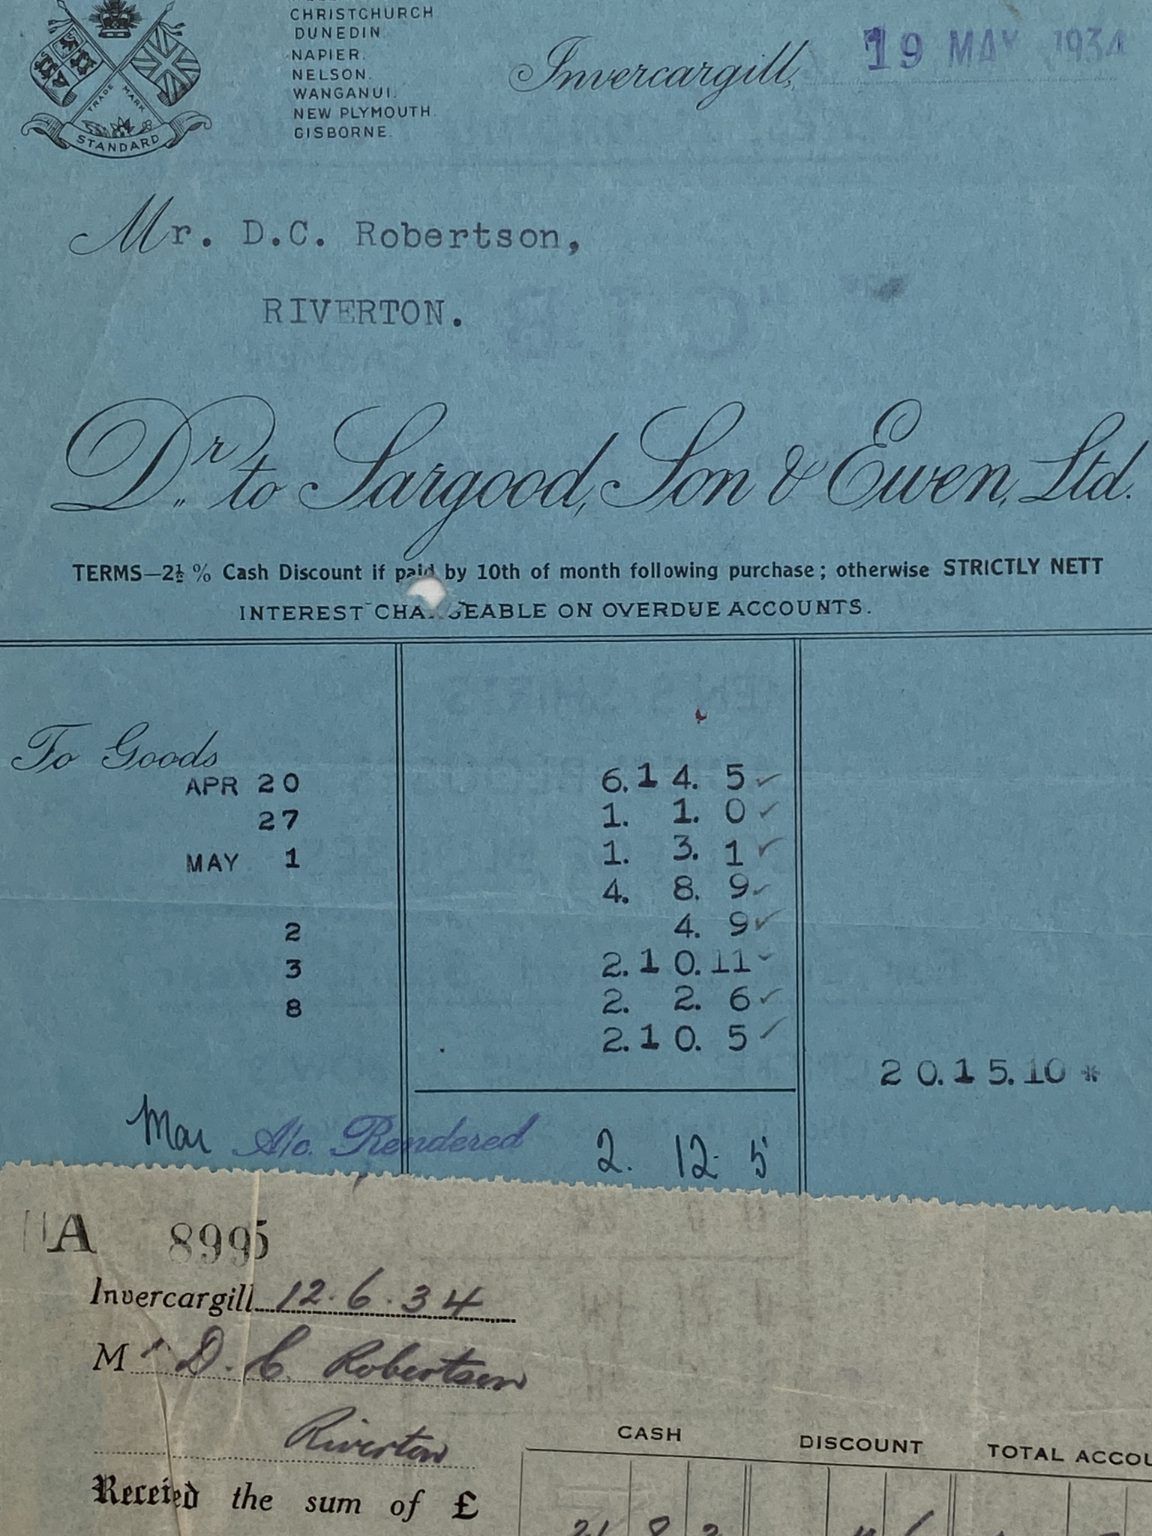 CHRISTCHURCH
DUNEDIN
NAPIER.
NELSON.
WANGANUI.
NEW PLYMOUTH.
GISBORNE.
TRADE MARK
STANDARD
Invercargill, 19 MAY 1934
Mr. D.C. Robertson,
RIVERTON.
Dr. to Sargood, Son & Ewen, Ltd.
TERMS—2½ % Cash Discount if paid by 10th of month following purchase; otherwise STRICTLY NETT
INTEREST CHARGEABLE ON OVERDUE ACCOUNTS.
To Goods
APR 20 6.14. 5
27 1. 1. 0
MAY 1 1. 3. 1
4. 8. 9
2 4. 9
3 2.10.11
8 2. 2. 6
2.10. 5
20.15.10 *
Mar A/c. Rendered 2. 12. 5
A 8995
Invercargill 12.6.34
Mr D. C. Robertson
Riverton
CASH DISCOUNT TOTAL ACCOU
Received the sum of £